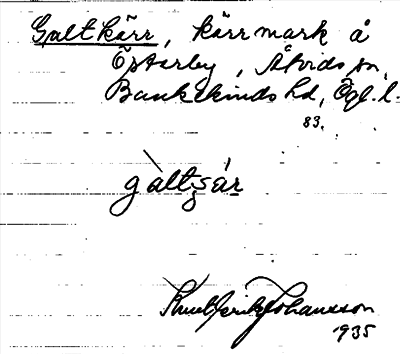 Galtkärr, kärrmark å
Österby, Åtvids sn,
Bankekinds hd, Ögl. l.
83.
gàltsár
Knut Erik Johansson
1935